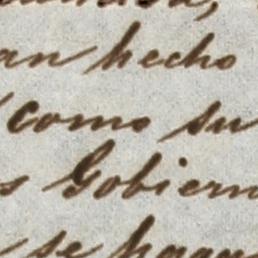 an hecho
como su
s Gobiern
se hagan